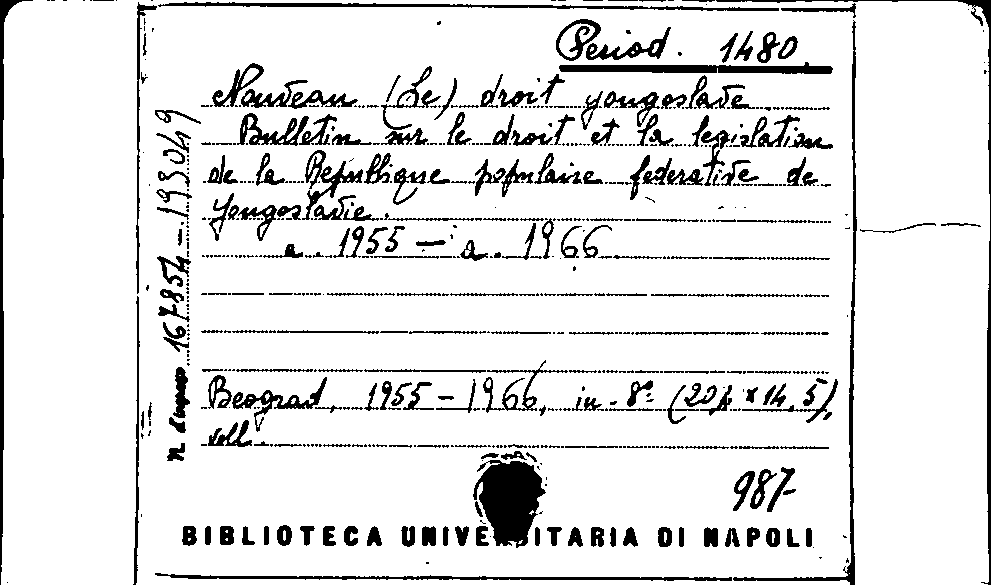 Period. 1480.
Nouveau (Le) droit yougoslave.
Bulletin sur le droit et la legislation
de la Republique populaire federative de
Yougoslavie.
a. 1955 — a. 1966.
Beograd, 1955 - 1966, in - 8º (20 x 14,5),
voll.
987
n. d'ingresso 167854 — 193049
BIBLIOTECA UNIVERSITARIA DI NAPOLI